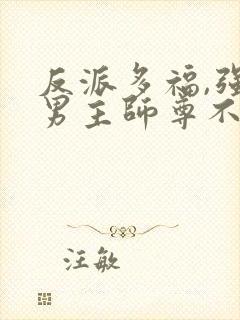 反派多福,强
男主師尊不
汪敏